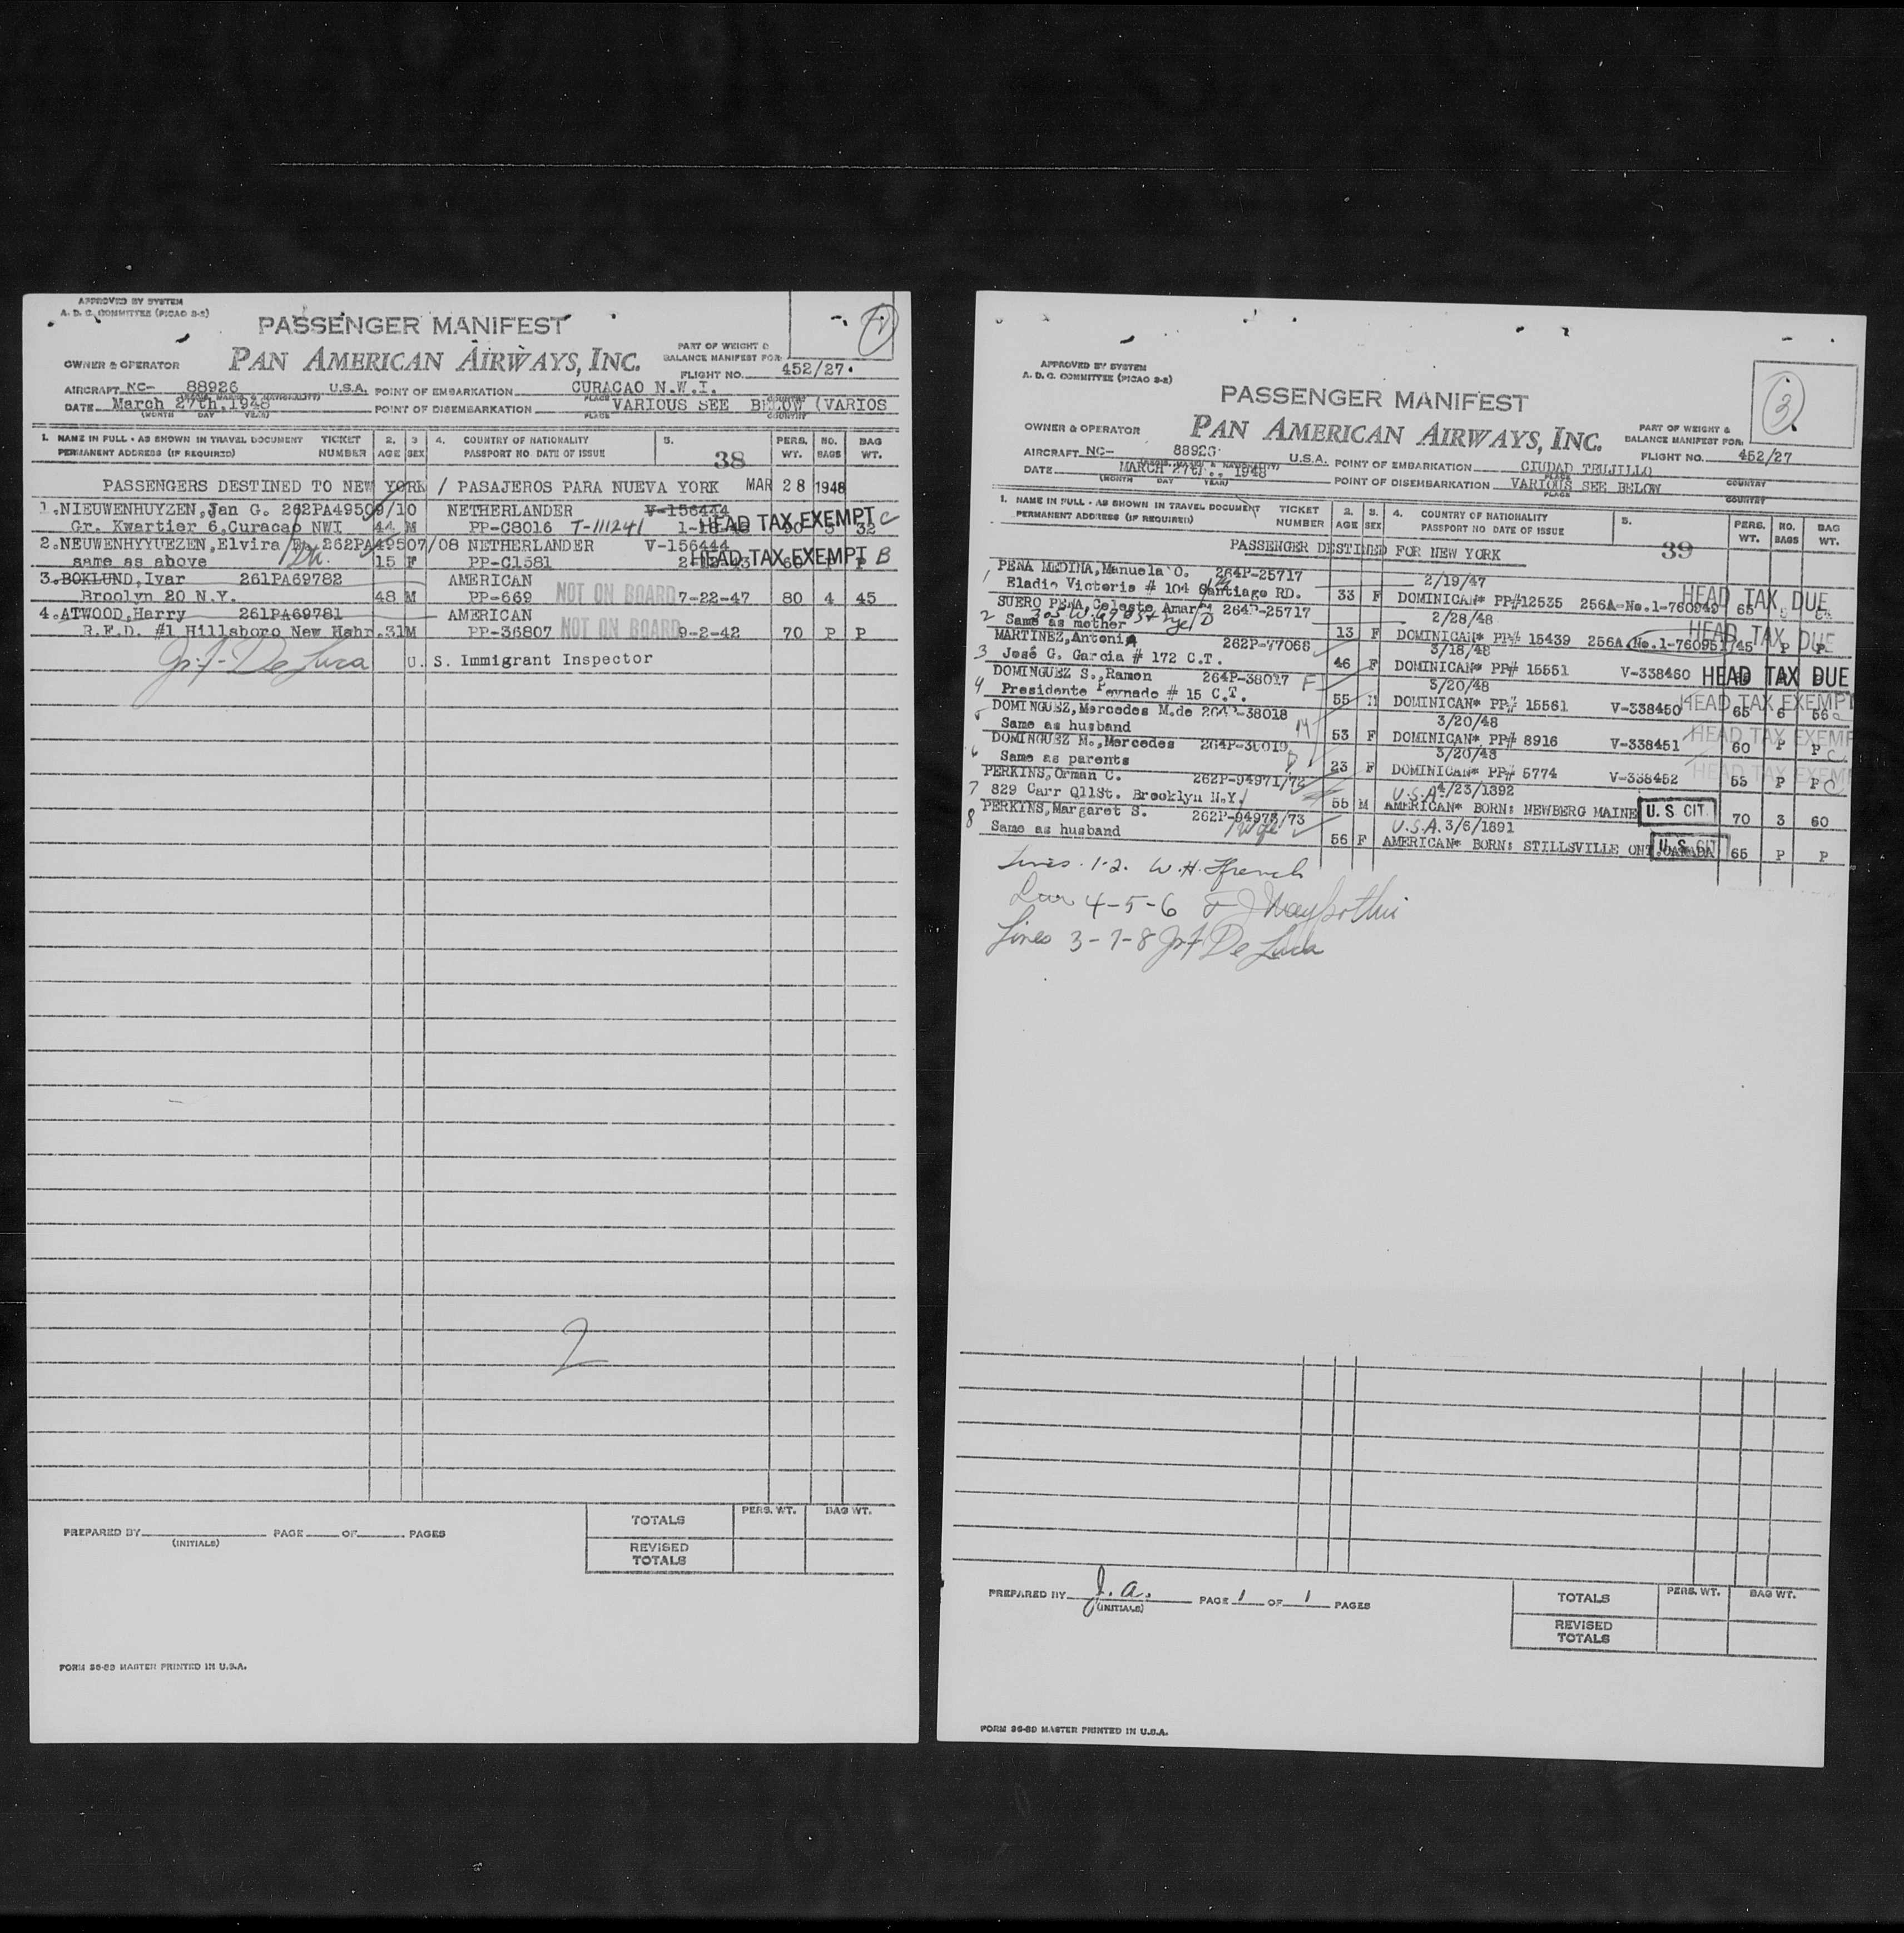 APPROVED BY SYSTEM
A. D. C. COMMITTEE (PICAO 2-2)
PASSENGER MANIFEST
PAN AMERICAN AIRWAYS, INC.
OWNER & OPERATOR
PART OF WEIGHT &
BALANCE MANIFEST FOR:
FLIGHT NO. 452/27
AIRCRAFT NC- 88926 U.S.A. POINT OF EMBARKATION CURACAO N.W.I.
DATE March 27th,1948 POINT OF DISEMBARKATION VARIOUS SEE BELOW (VARIOS
(MONTH DAY YEAR) PLACE COUNTRY
1. NAME IN FULL - AS SHOWN IN TRAVEL DOCUMENT TICKET 2. 3 4. COUNTRY OF NATIONALITY 5. PERS. NO. BAG
PERMANENT ADDRESS (IF REQUIRED) NUMBER AGE SEX PASSPORT NO DATE OF ISSUE 38 WT. BAGS WT.
PASSENGERS DESTINED TO NEW YORK / PASAJEROS PARA NUEVA YORK MAR 28 1948
1.NIEUWENHUYZEN,Jan G. 262PA49509/10 NETHERLANDER V-156444
Gr. Kwartier 6,Curacao NWI 44 M PP-C8016 T-111241 HEAD TAX EXEMPT C 32
2.NEUWENHYYUEZEN,Elvira 262PA49507/08 NETHERLANDER V-156444
same as above 15 F PP-C1581 HEAD TAX EXEMPT B P
3.BOKLUND,Ivar 261PA69782 AMERICAN
Broolyn 20 N.Y. 48 M PP-669 NOT ON BOARD 7-22-47 80 4 45
4.ATWOOD,Harry 261PA69781 AMERICAN
R.F.D. #1 Hillsboro New Hahr. 31 M PP-36807 NOT ON BOARD 9-2-42 70 P P
De Luca U. S. Immigrant Inspector
2
PREPARED BY PAGE OF PAGES
(INITIALS)
TOTALS PERS. WT. BAG WT.
REVISED
TOTALS
FORM 36-89 MASTER PRINTED IN U.S.A.
APPROVED BY SYSTEM
A. D. C. COMMITTEE (PICAO 2-2)
3
PASSENGER MANIFEST
PAN AMERICAN AIRWAYS, INC.
OWNER & OPERATOR
PART OF WEIGHT &
BALANCE MANIFEST FOR:
FLIGHT NO. 452/27
AIRCRAFT NC- 88926 U.S.A. POINT OF EMBARKATION CIUDAD TRUJILLO
DATE MARCH 27th., 1948 POINT OF DISEMBARKATION VARIOUS SEE BELOW
(MONTH DAY YEAR) PLACE COUNTRY
1. NAME IN FULL - AS SHOWN IN TRAVEL DOCUMENT TICKET 2. 3. 4. COUNTRY OF NATIONALITY 5. PERS. NO. BAG
PERMANENT ADDRESS (IF REQUIRED) NUMBER AGE SEX PASSPORT NO DATE OF ISSUE 39 WT. BAGS WT.
PASSENGER DESTINED FOR NEW YORK
PEÑA MEDINA,Manuela O. 264P-25717 2/19/47
1 Eladio Victoria # 104 Santiago RD. 33 F DOMINICAN* PP#12535 256A-No.1-760949 65 HEAD TAX DUE
SUERO PEÑA,Celeste Amar 264P-25717 2/28/48
2 Same as mother 13 F DOMINICAN* PP# 15439 256A.No.1-760951 45 P P HEAD TAX DUE
MARTINEZ,Antonia 262P-77066 3/18/48
3 José G. Garcia # 172 C.T. 46 F DOMINICAN* PP# 15551 V-338460 HEAD TAX DUE
DOMINGUEZ S.,Ramon 264P-38017 F 3/20/48
4 Presidente Peynado # 15 C.T. 55 M DOMINICAN* PP# 15561 V-338450 HEAD TAX EXEMPT 65 6 56
DOMINGUEZ,Mercedes M.de 264P-38018 M 3/20/48
5 Same as husband 53 F DOMINICAN* PP# 8916 V-338451 HEAD TAX EXEMPT 60 P P C
DOMINGUEZ M.,Mercedes 264P-38019 D 3/20/48
6 Same as parents 23 F DOMINICAN* PP# 5774 V-338452 HEAD TAX EXEMPT 55 P P C
PERKINS,Orman C. 262P-94971/72 U.S.A. 4/23/1892
7 829 Carr Qllst. Brooklyn N.Y. 55 M AMERICAN* BORN: NEWBERG MAINE U.S CIT. 70 3 60
PERKINS,Margaret S. 262P-94973/73 U.S.A. 3/6/1891
8 Same as husband Wife 56 F AMERICAN* BORN: STILLSVILLE ONT.CANADA U.S. CIT 65 P P
Lines 1-2. W.H. French
4-5-6
Lines 3-7-8 De Luca
PREPARED BY J. A. PAGE 1 OF 1 PAGES
(INITIALS)
TOTALS PERS. WT. BAG WT.
REVISED
TOTALS
FORM 36-89 MASTER PRINTED IN U.S.A.